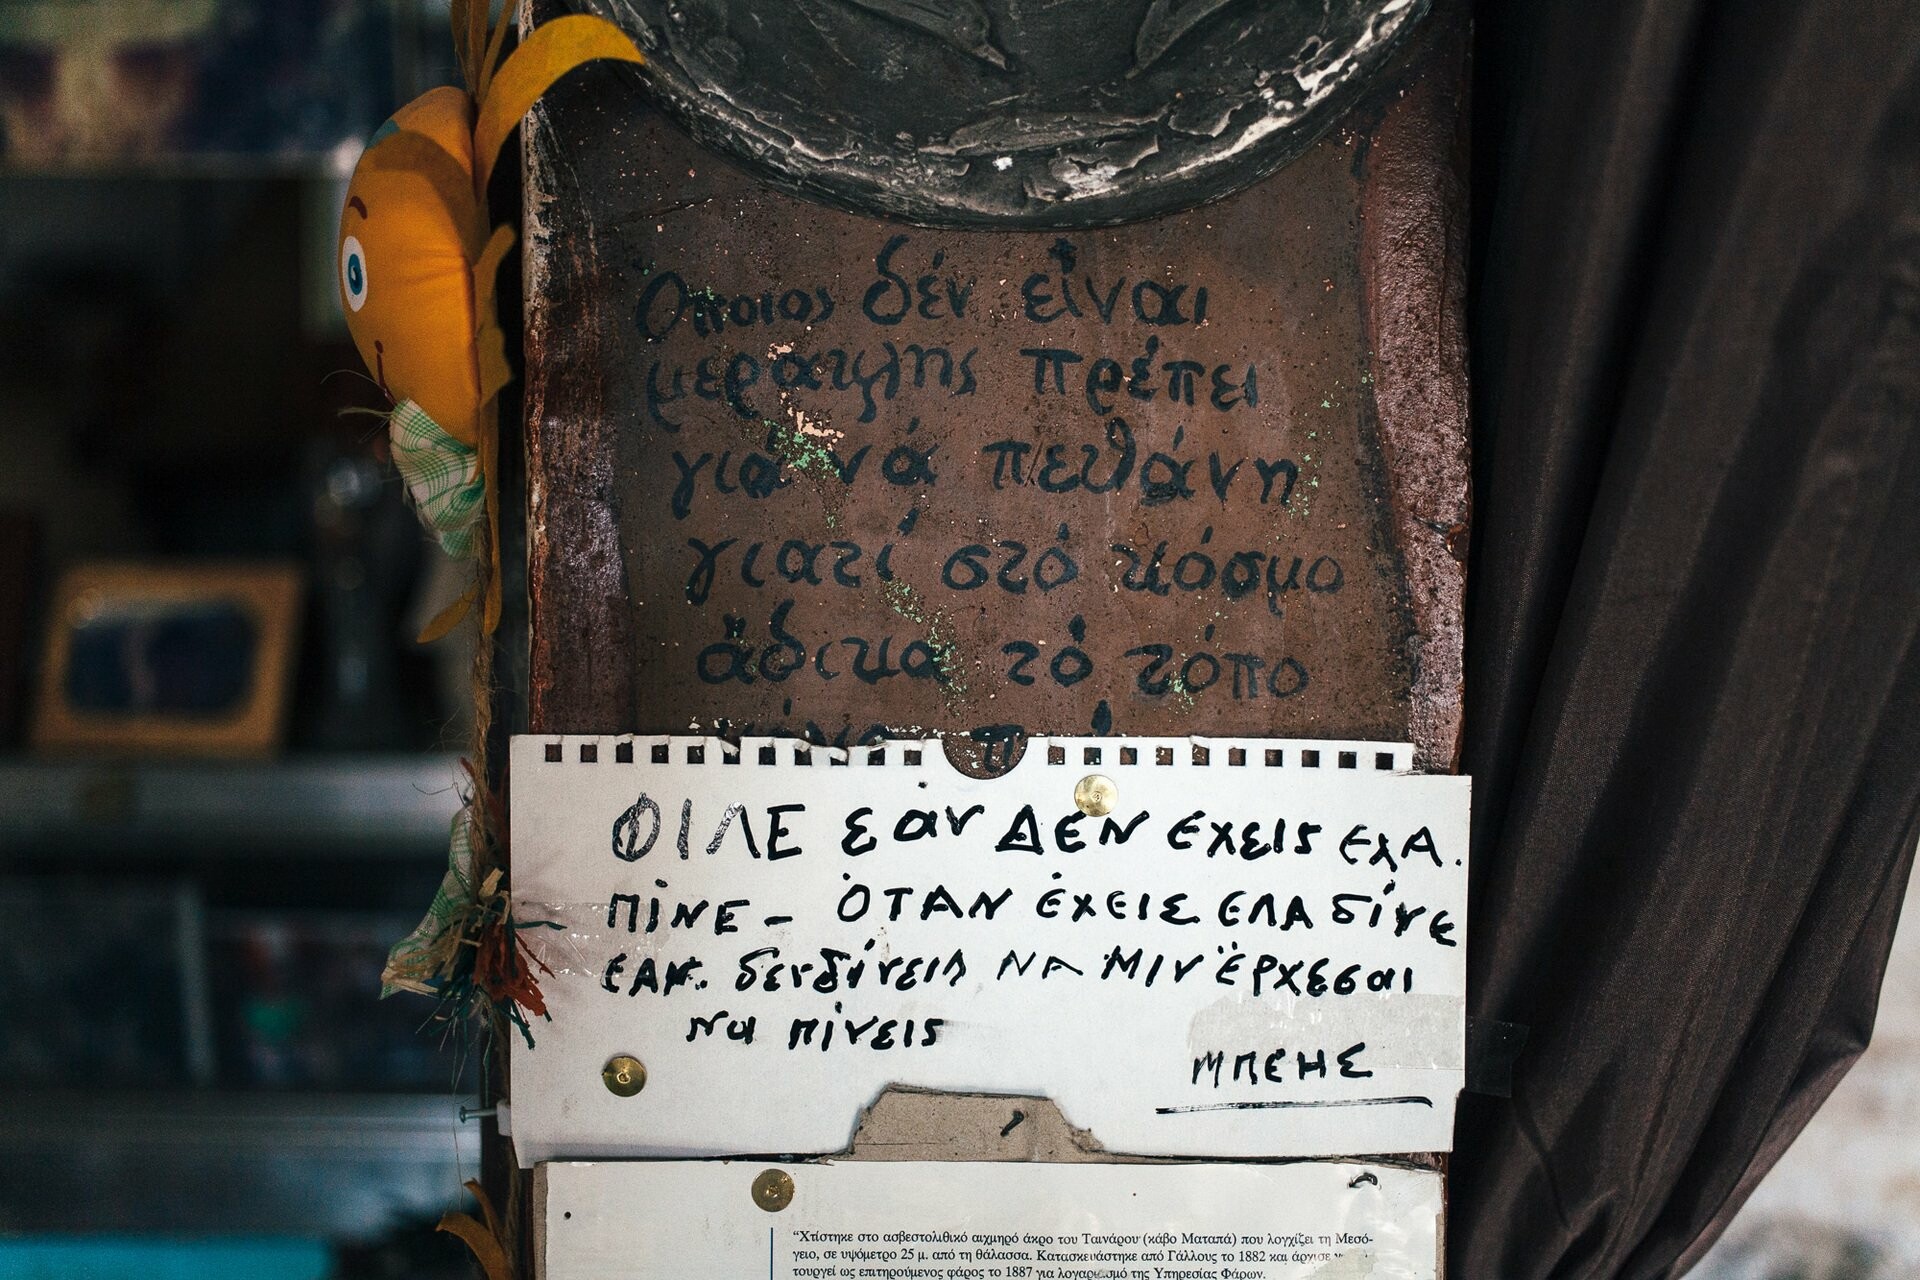 Όποιος δέν εἶναι
μερακλης πρέπει
γιά νά πεθάνη
γιατί στό κόσμο
ἄδικα τό τόπο
ΦΙΛΕ εαν ΔΕΝ εχεις ελΑ.
ΠίΝΕ - ΟΤΑΝ έχεις ΕΛΑ δίνε
ΕΑΝ. δενδίνεις ΝΑ ΜΙΝ ΈΡΧεσαι
να πίνεις
ΜΠΕΗΣ
“Χτίστηκε στο ασβεστολιθικό αιχμηρό άκρο του Ταινάρου (κάβο Ματαπά) που λογχίζει τη Μεσό-
γειο, σε υψόμετρο 25 μ. από τη θάλασσα. Κατασκευάστηκε από Γάλλους το 1882 και άρχισε
τουργεί ως επιτηρούμενος φάρος το 1887 για λογαριασμό της Υπηρεσίας Φάρων.